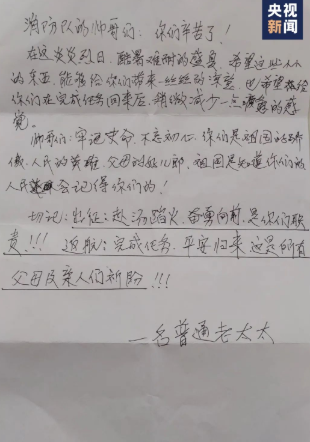 央视新闻
消防队的帅哥们：你们辛苦了！
在这炎炎烈日，酷暑难耐的盛夏，希望这些小小
的东西，能够给你们带来一丝丝的凉爽，也希望能给
你们在完成任务回来后，稍微减少一点疲惫的感
觉。
帅哥们：牢记使命，不忘初心，你们是祖国的骄
傲，人民的英雄，父母的好儿郎，祖国是知道你们的
人民会记得你们的！
切记：出征：赴汤蹈火，奋勇向前，是你们职
责！！！返航：完成任务，平安归来，这是所有
父母及亲人们祈盼！！！
一名普通老太太